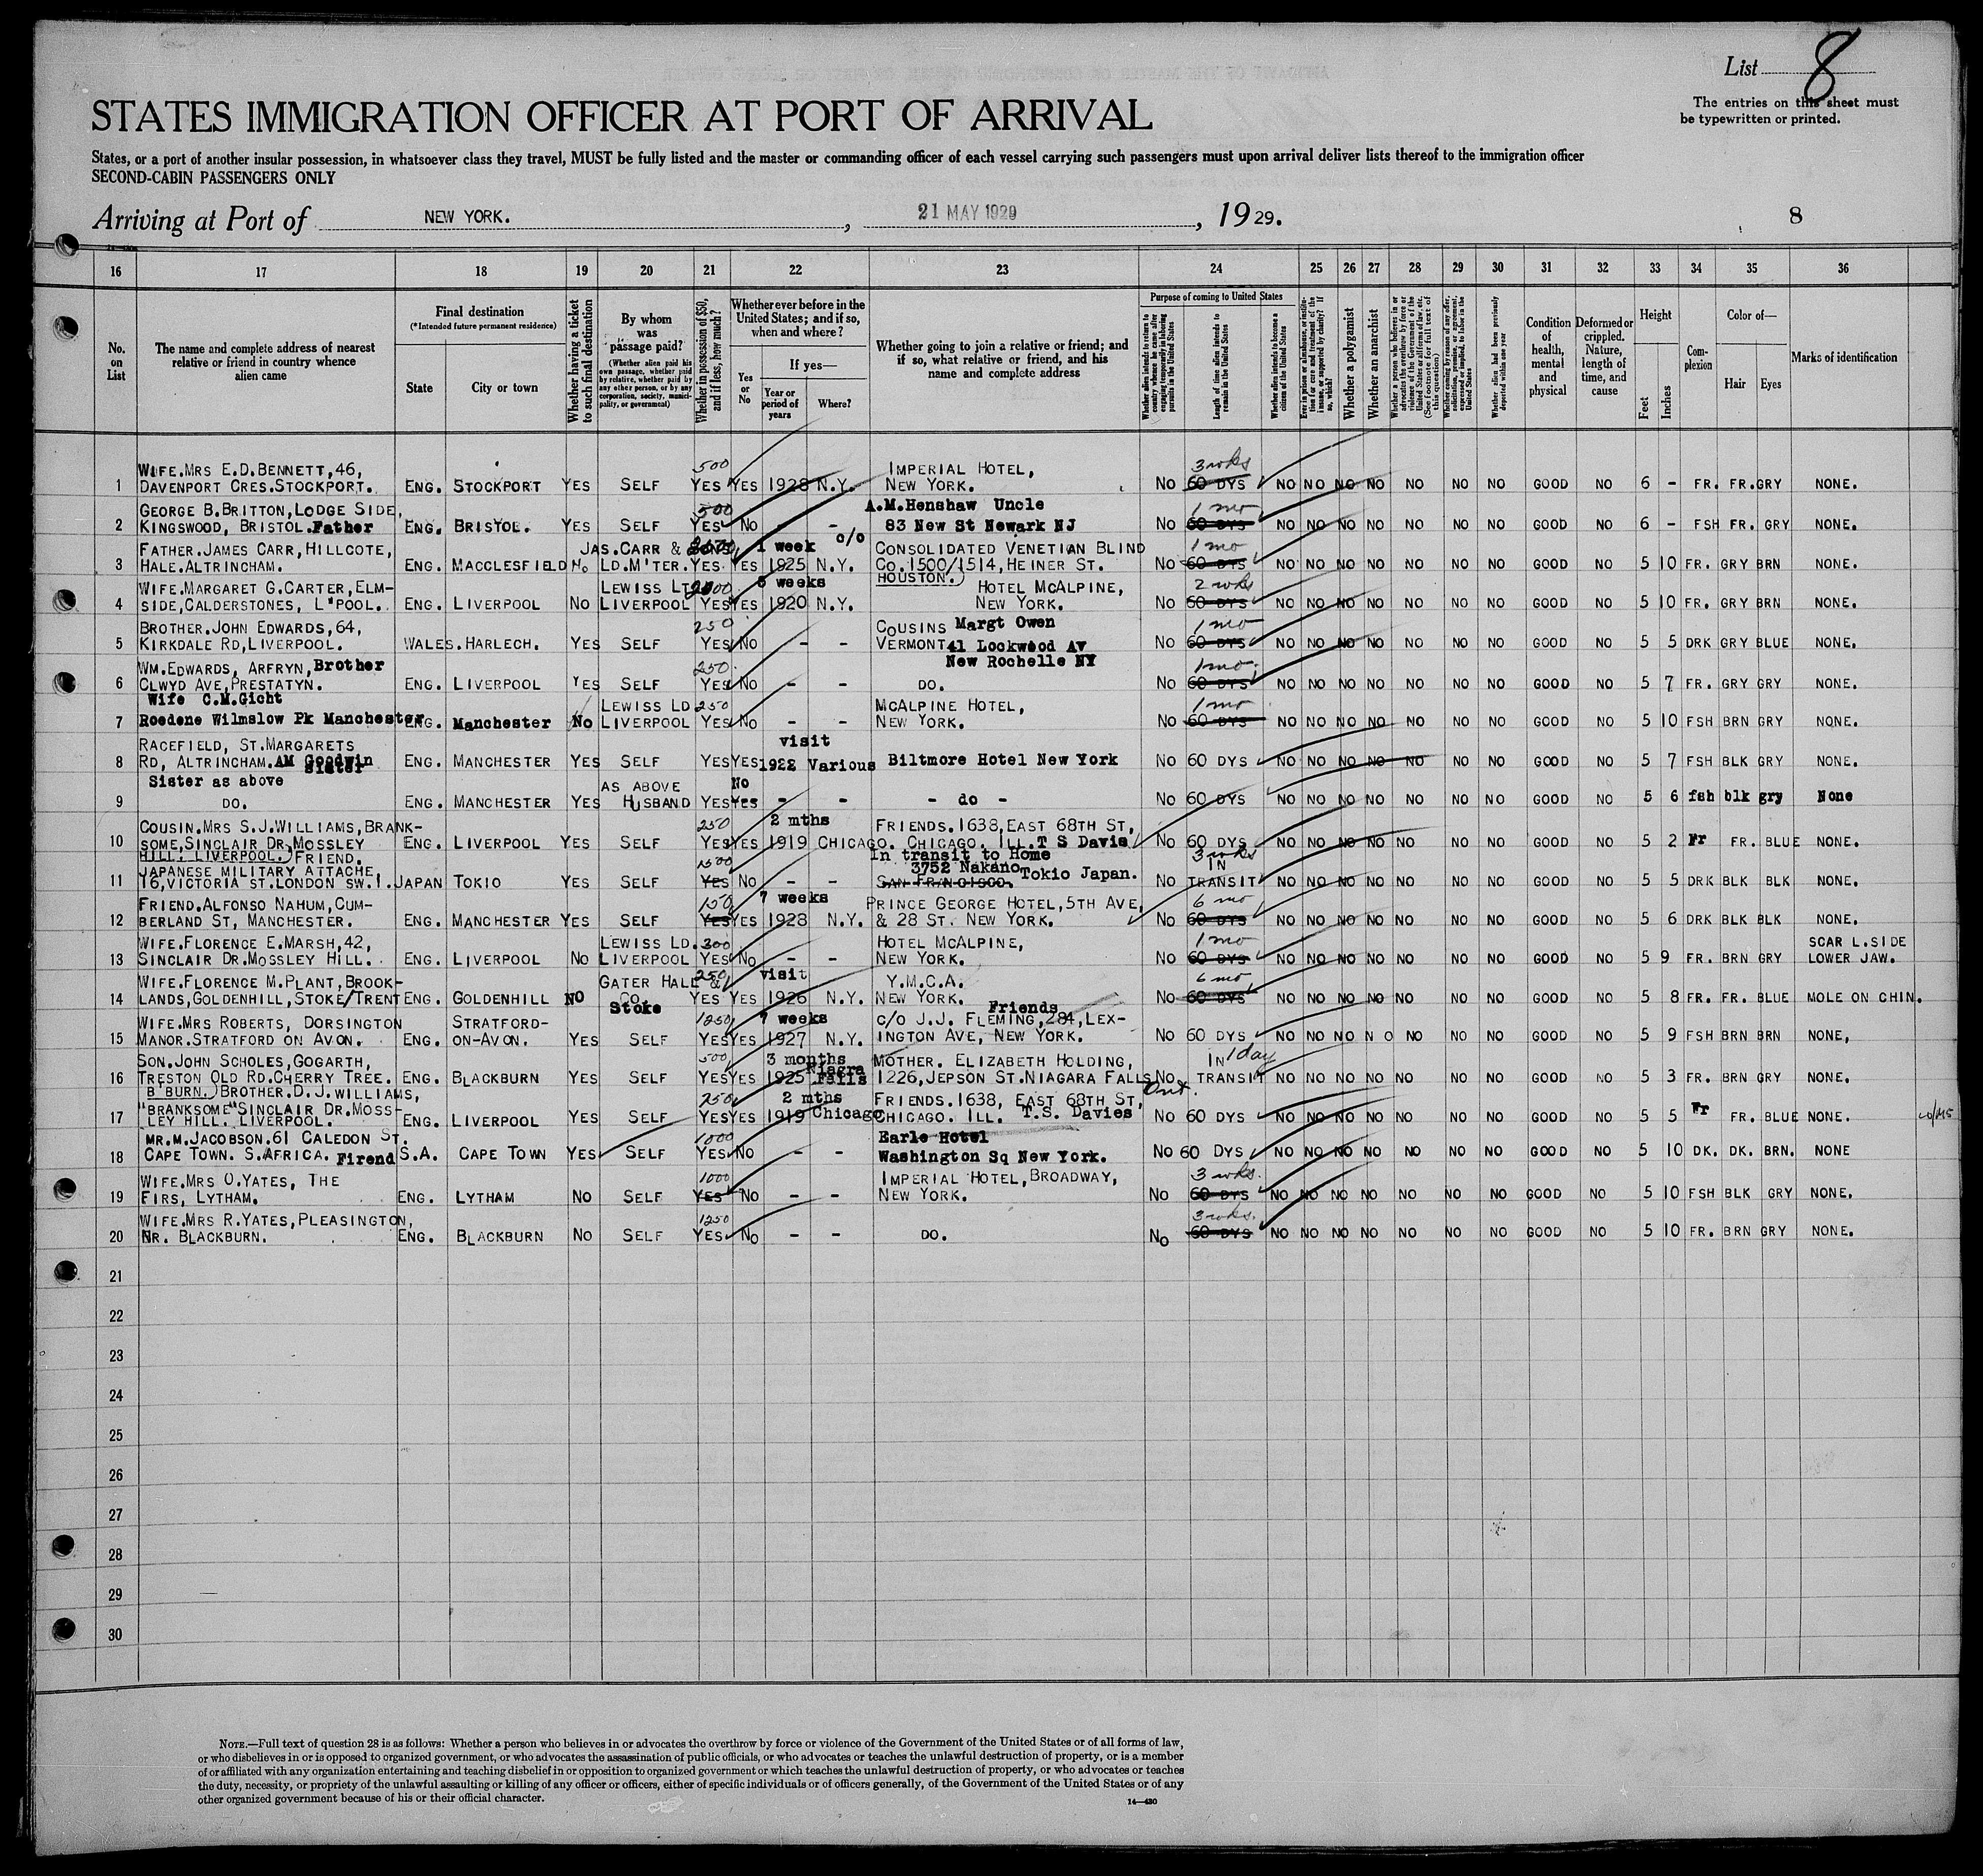 List 8
The entries on this sheet must
be typewritten or printed.
STATES IMMIGRATION OFFICER AT PORT OF ARRIVAL
States, or a port of another insular possession, in whatsoever class they travel, MUST be fully listed and the master or commanding officer of each vessel carrying such passengers must upon arrival deliver lists thereof to the immigration officer
SECOND-CABIN PASSENGERS ONLY
Arriving at Port of NEW YORK. , 21 MAY 1929 , 1929. 8
16 17 18 19 20 21 22 23 24 25 26 27 28 29 30 31 32 33 34 35 36
No. on List
The name and complete address of nearest relative or friend in country whence alien came
Final destination
(*Intended future permanent residence)
State
City or town
Whether having a ticket to such final destination
By whom was passage paid?
(Whether alien paid his own passage, whether paid by relative, whether paid by any other person, or by any corporation, society, municipality, or government)
Whether in possession of $50, and if less, how much?
Whether ever before in the United States; and if so, when and where?
Yes or No
If yes—
Year or period of years
Where?
Whether going to join a relative or friend; and if so, what relative or friend, and his name and complete address
Purpose of coming to United States
Whether alien intends to return to country whence he came after engaging temporarily in laboring pursuits in the United States
Length of time alien intends to remain in the United States
Whether alien intends to become a citizen of the United States
Ever in prison or almshouse, or institution for care and treatment of the insane, or supported by charity? If so, which?
Whether a polygamist
Whether an anarchist
Whether a person who believes in or advocates the overthrow by force or violence of the Government of the United States or all forms of law, etc. (See footnote for full text of this question)
Whether coming by reason of any offer, solicitation, promise, or agreement, expressed or implied, to labor in the United States
Whether alien had been previously deported within one year
Condition of health, mental and physical
Deformed or crippled. Nature, length of time, and cause
Height
Feet
Inches
Complexion
Color of—
Hair
Eyes
Marks of identification
WIFE.MRS E.D.BENNETT,46, 500 IMPERIAL HOTEL, 3 wks
1 DAVENPORT CRES.STOCKPORT. ENG. STOCKPORT YES SELF YES YES 1928 N.Y. NEW YORK. NO 60 DYS NO NO NO NO NO NO NO GOOD NO 6 - FR. FR. GRY NONE.
GEORGE B.BRITTON,LODGE SIDE, 500 A.M.Henshaw Uncle 1 mo
2 KINGSWOOD, BRISTOL.Father ENG. BRISTOL. YES SELF YES NO - - 83 New St Newark NJ NO 60 DYS NO NO NO NO NO NO NO GOOD NO 6 - FSH FR. GRY NONE.
FATHER.JAMES CARR,HILLCOTE, JAS.CARR & SONS 1 week c/o CONSOLIDATED VENETIAN BLIND 1 mo
3 HALE.ALTRINCHAM. ENG. MACCLESFIELD NO LD.M'TER. YES YES 1925 N.Y. CO.1500/1514,HEINER ST. NO 60 DYS NO NO NO NO NO NO NO GOOD NO 5 10 FR. GRY BRN NONE.
HOUSTON.)
WIFE.MARGARET G.CARTER,ELM- LEWISS LT 5 weeks HOTEL MCALPINE, 2 wks
4 SIDE,CALDERSTONES, L'POOL. ENG. LIVERPOOL NO LIVERPOOL YES YES 1920 N.Y. NEW YORK. NO 60 DYS NO NO NO NO NO NO NO GOOD NO 5 10 FR. GRY BRN NONE.
BROTHER.JOHN EDWARDS,64, 250 COUSINS Margt Owen 1 mo
5 KIRKDALE RD,LIVERPOOL. WALES.HARLECH. YES SELF YES NO - - VERMONT 41 Lockwood AV NO 60 DYS NO NO NO NO NO NO NO GOOD NO 5 5 DRK GRY BLUE NONE.
New Rochelle NY
WM.EDWARDS, ARFRYN,Brother 250 1 mo
6 CLWYD AVE,PRESTATYN. ENG. LIVERPOOL YES SELF YES NO - - DO. NO 60 DYS NO NO NO NO NO NO NO GOOD NO 5 7 FR. GRY GRY NONE.
Wife C.M.Gicht LEWISS LD 250 MCALPINE HOTEL, 1 mo
7 Roedene Wilmslow Pk Manchester ENG. Manchester NO LIVERPOOL YES NO - - NEW YORK. NO 60 DYS NO NO NO NO NO NO NO GOOD NO 5 10 FSH BRN GRY NONE.
RACEFIELD, ST.MARGARETS visit
8 RD, ALTRINCHAM.AM Goodwin Sister ENG. MANCHESTER YES SELF YES YES 1922 Various Biltmore Hotel New York NO 60 DYS NO NO NO NO NO NO NO GOOD NO 5 7 FSH BLK GRY NONE.
Sister as above AS ABOVE No
9 DO. ENG. MANCHESTER YES HUSBAND YES YES - - - do - NO 60 DYS NO NO NO NO NO NO NO GOOD NO 5 6 fsh blk gry None
COUSIN.MRS S.J.WILLIAMS,BRANK- 250 2 mths FRIENDS.1638,EAST 68TH ST,
10 SOME,SINCLAIR DR,MOSSLEY ENG. LIVERPOOL YES SELF YES YES 1919 CHICAGO. CHICAGO. ILL.T S Davis NO 60 DYS NO NO NO NO NO NO NO GOOD NO 5 2 Fr FR. BLUE NONE.
HILL. LIVERPOOL.) FRIEND. In transit to Home 3 wks
JAPANESE MILITARY ATTACHE 1500 3752 Nakano IN
11 16,VICTORIA ST.LONDON SW.1. JAPAN TOKIO YES SELF YES NO - - SAN FRANCISCO. Tokio Japan. NO TRANSIT NO NO NO NO NO NO NO GOOD NO 5 5 DRK BLK BLK NONE.
FRIEND.ALFONSO NAHUM,CUM- 150 7 weeks PRINCE GEORGE HOTEL,5TH AVE, 6 mo
12 BERLAND ST, MANCHESTER. ENG. MANCHESTER YES SELF YES YES 1928 N.Y. & 28 ST. NEW YORK. NO 60 DYS NO NO NO NO NO NO NO GOOD NO 5 6 DRK BLK BLK NONE.
WIFE.FLORENCE E.MARSH,42, LEWISS LD. 300 HOTEL MCALPINE, 1 mo SCAR L.SIDE
13 SINCLAIR DR.MOSSLEY HILL. ENG. LIVERPOOL NO LIVERPOOL YES NO - - NEW YORK. NO 60 DYS NO NO NO NO NO NO NO GOOD NO 5 9 FR. BRN GRY LOWER JAW.
WIFE.FLORENCE M.PLANT,BROOK- GATER HALL & 250 visit Y.M.C.A. 6 mo
14 LANDS,GOLDENHILL,STOKE/TRENT ENG. GOLDENHILL NO CO. YES YES 1926 N.Y. NEW YORK. NO 60 DYS NO NO NO NO NO NO NO GOOD NO 5 8 FR. FR. BLUE MOLE ON CHIN.
Stoke Friends
WIFE.MRS ROBERTS, DORSINGTON STRATFORD- 1250 7 weeks C/O J.J. FLEMING,284,LEX-
15 MANOR.STRATFORD ON AVON. ENG. ON-AVON. YES SELF YES YES 1927 N.Y. INGTON AVE, NEW YORK. NO 60 DYS NO NO NO NO NO NO NO GOOD NO 5 9 FSH BRN BRN NONE,
SON.JOHN SCHOLES,GOGARTH, 500 3 months MOTHER. ELIZABETH HOLDING, IN 1 day
16 TRESTON OLD RD.CHERRY TREE. ENG. BLACKBURN YES SELF YES YES 1925 Niagra Falls 1226,JEPSON ST.NIAGARA FALLS NO TRANSIT NO NO NO NO NO NO NO GOOD NO 5 3 FR. BRN GRY NONE.
B'BURN.) BROTHER.D.J.WILLIAMS, Ont.
"BRANKSOME"SINCLAIR DR.MOSS- 250 2 mths FRIENDS.1638, EAST 68TH ST,
17 LEY HILL. LIVERPOOL. ENG. LIVERPOOL YES SELF YES YES 1919 Chicago CHICAGO. ILL. T.S. Davies NO 60 DYS NO NO NO NO NO NO NO GOOD NO 5 5 Fr FR. BLUE NONE.
MR.M.JACOBSON.61 CALEDON ST. 1000 Earle Hotel
18 CAPE TOWN. S.AFRICA. Firend S.A. CAPE TOWN YES SELF YES NO - - Washington Sq New York. NO 60 DYS NO NO NO NO NO NO NO GOOD NO 5 10 DK. DK. BRN. NONE
WIFE.MRS O.YATES, THE 1000 IMPERIAL HOTEL,BROADWAY, 3 wks.
19 FIRS, LYTHAM. ENG. LYTHAM NO SELF YES NO - - NEW YORK. NO 60 DYS NO NO NO NO NO NO NO GOOD NO 5 10 FSH BLK GRY NONE.
WIFE.MRS R.YATES,PLEASINGTON, 1250 3 wks.
20 NR. BLACKBURN. ENG. BLACKBURN NO SELF YES NO - - DO. NO 60 DYS NO NO NO NO NO NO NO GOOD NO 5 10 FR. BRN GRY NONE.
21
22
23
24
25
26
27
28
29
30
NOTE.—Full text of question 28 is as follows: Whether a person who believes in or advocates the overthrow by force or violence of the Government of the United States or of all forms of law,
or who disbelieves in or is opposed to organized government, or who advocates the assassination of public officials, or who advocates or teaches the unlawful destruction of property, or is a member
of or affiliated with any organization entertaining and teaching disbelief in or opposition to organized government or which teaches the unlawful destruction of property, or who advocates or teaches
the duty, necessity, or propriety of the unlawful assaulting or killing of any officer or officers, either of specific individuals or of officers generally, of the Government of the United States or of any
other organized government because of his or their official character.
14—430